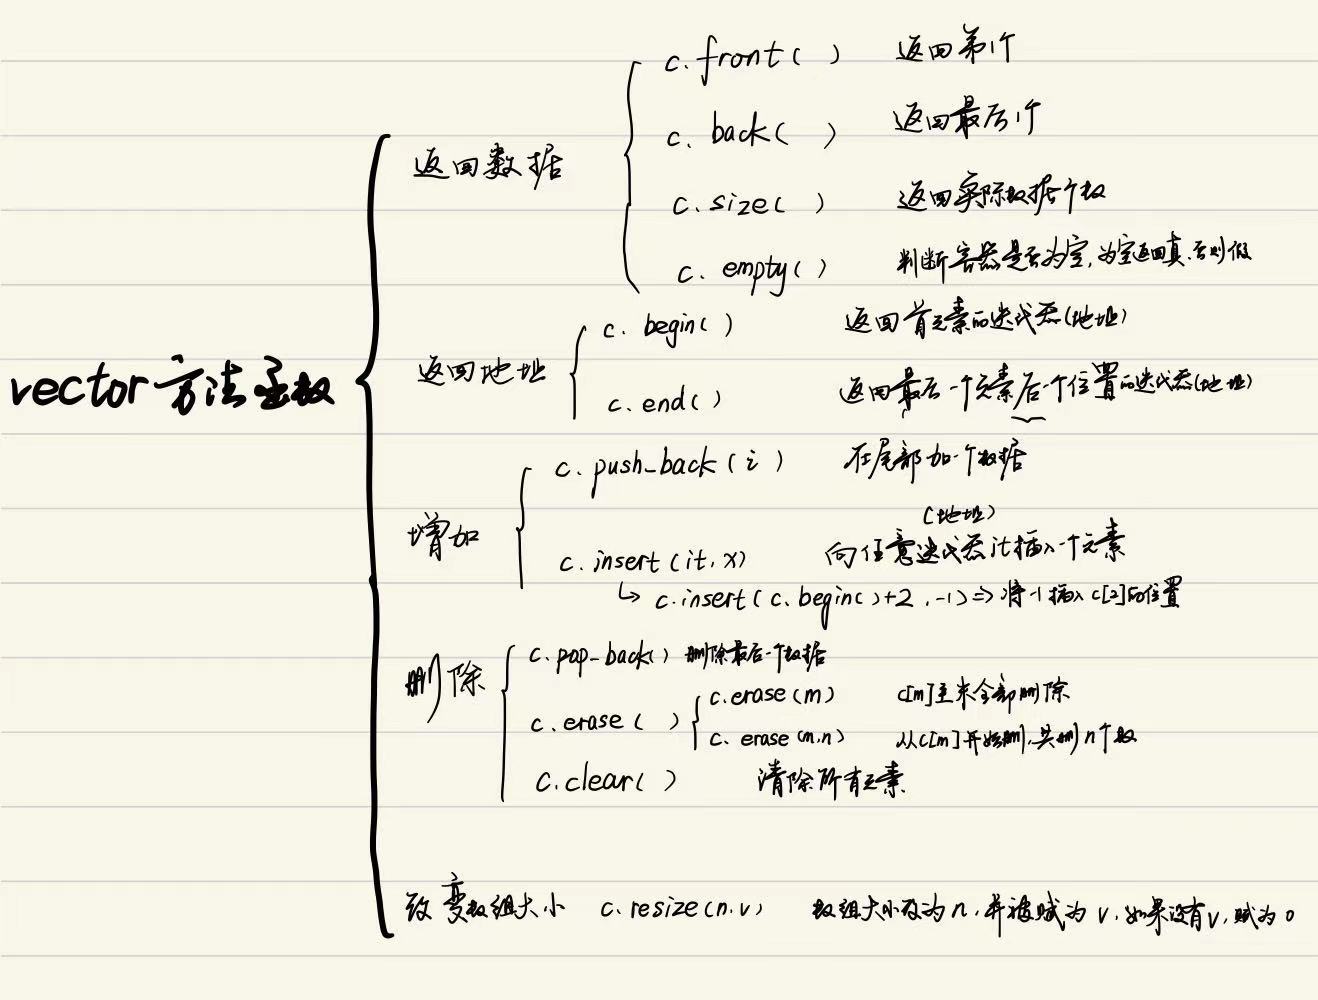 vector方法函数
返回数据
c.front( ) 返回第1个
c.back( ) 返回最后1个
c.size( ) 返回实际数据个数
c.empty( ) 判断容器是否为空,为空返回真,否则假
返回地址
c.begin( ) 返回首元素的迭代器(地址)
c.end( ) 返回最后一个元素后一个位置的迭代器(地址)
增加
c.push_back(i) 在尾部加一个数据
(地址)
c.insert(it,x) 向任意迭代器it插入一个元素
↳ c.insert(c.begin()+2,-1)⇒将-1插入c[2]的位置
删除
c.pop_back() 删除最后一个数据
c.erase( )
c.erase(m) c[m]至末全部删除
c.erase(m,n) 从c[m]开始删,共删n个数
c.clear( ) 清除所有元素
改变数组大小 c.resize(n,v) 数组大小改为n,并被赋为v,如果没有v,赋为0